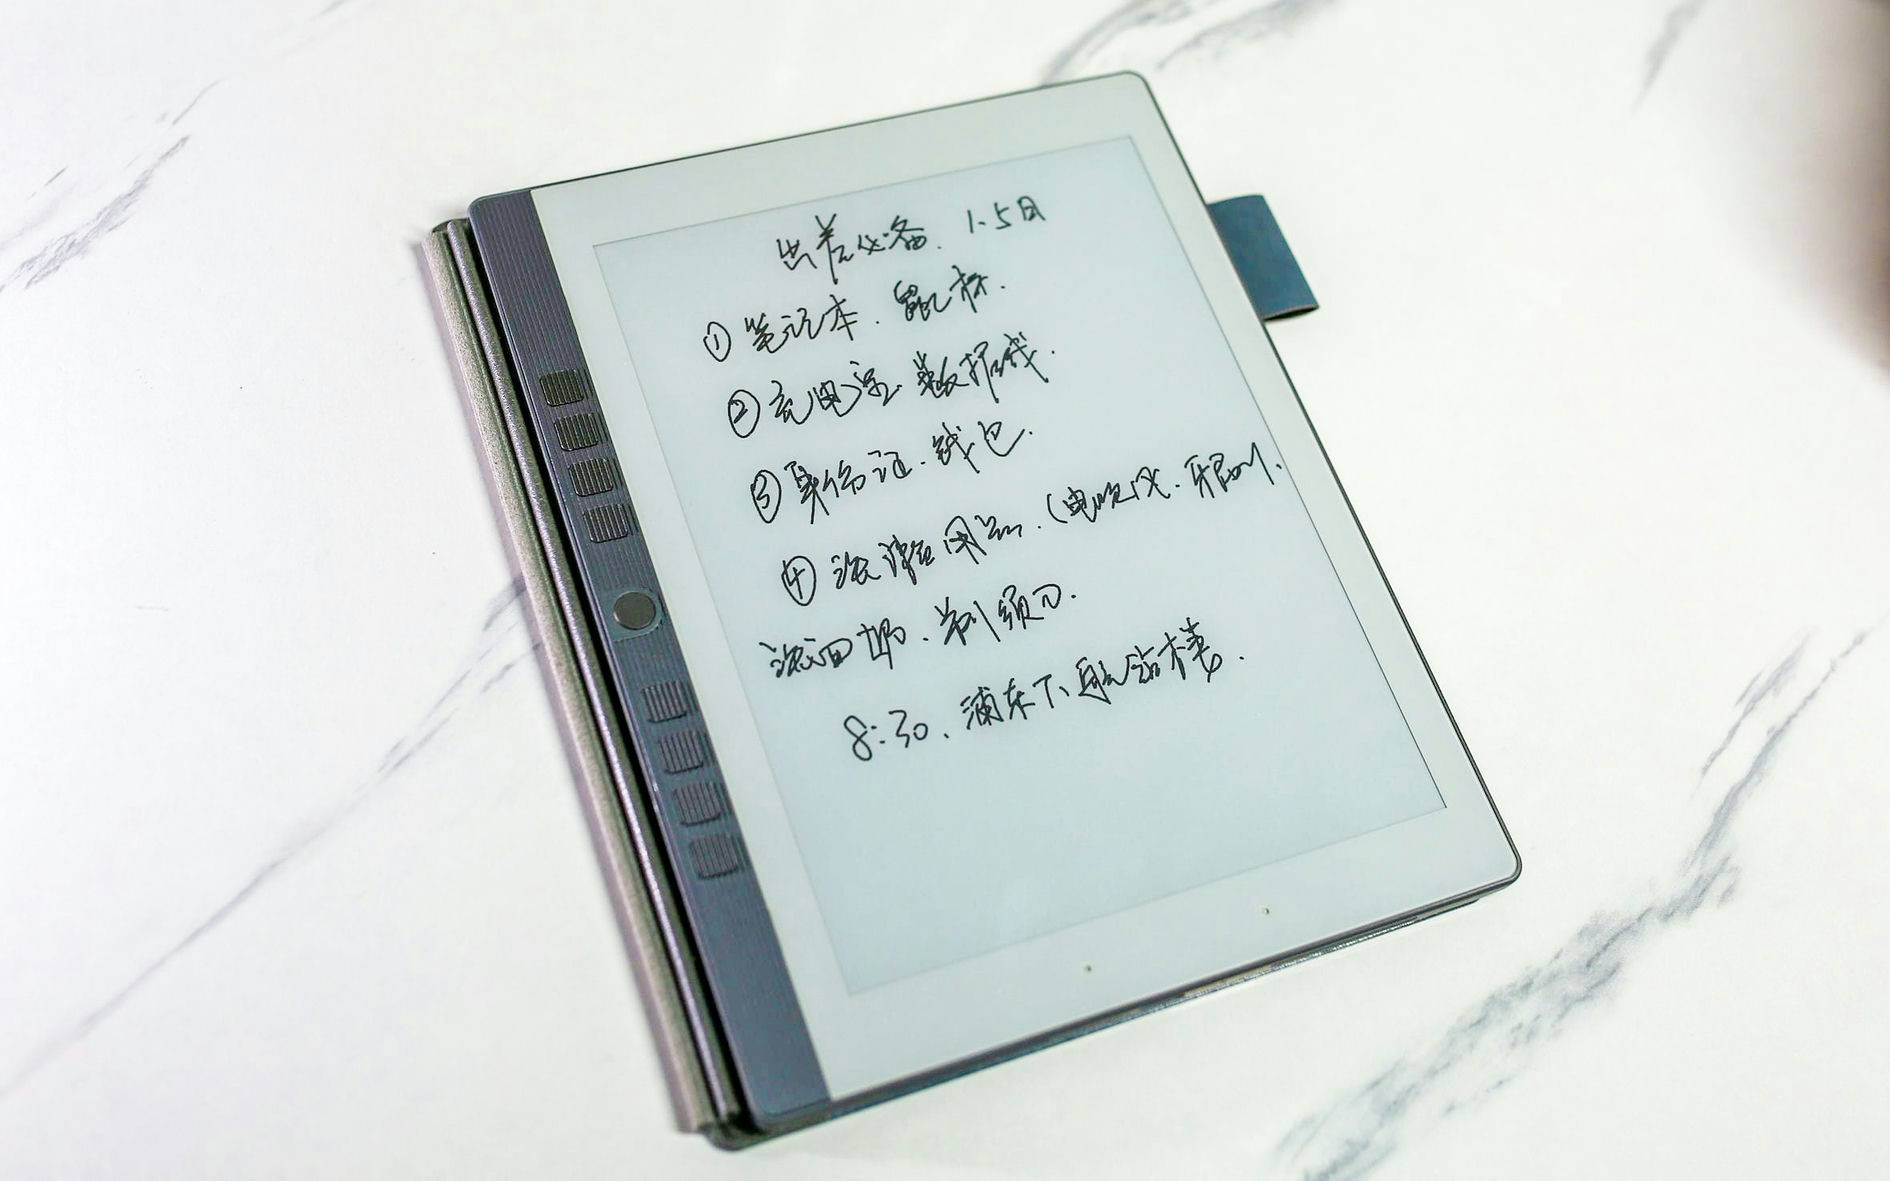 出差必备. 1.5日
① 笔记本. 鼠标.
② 充电宝. 数据线.
③ 身份证. 钱包.
④ 洗漱用品. (电吹风. 牙刷.
洗面奶. 剃须刀.
8:30. 浦东T1航站楼.